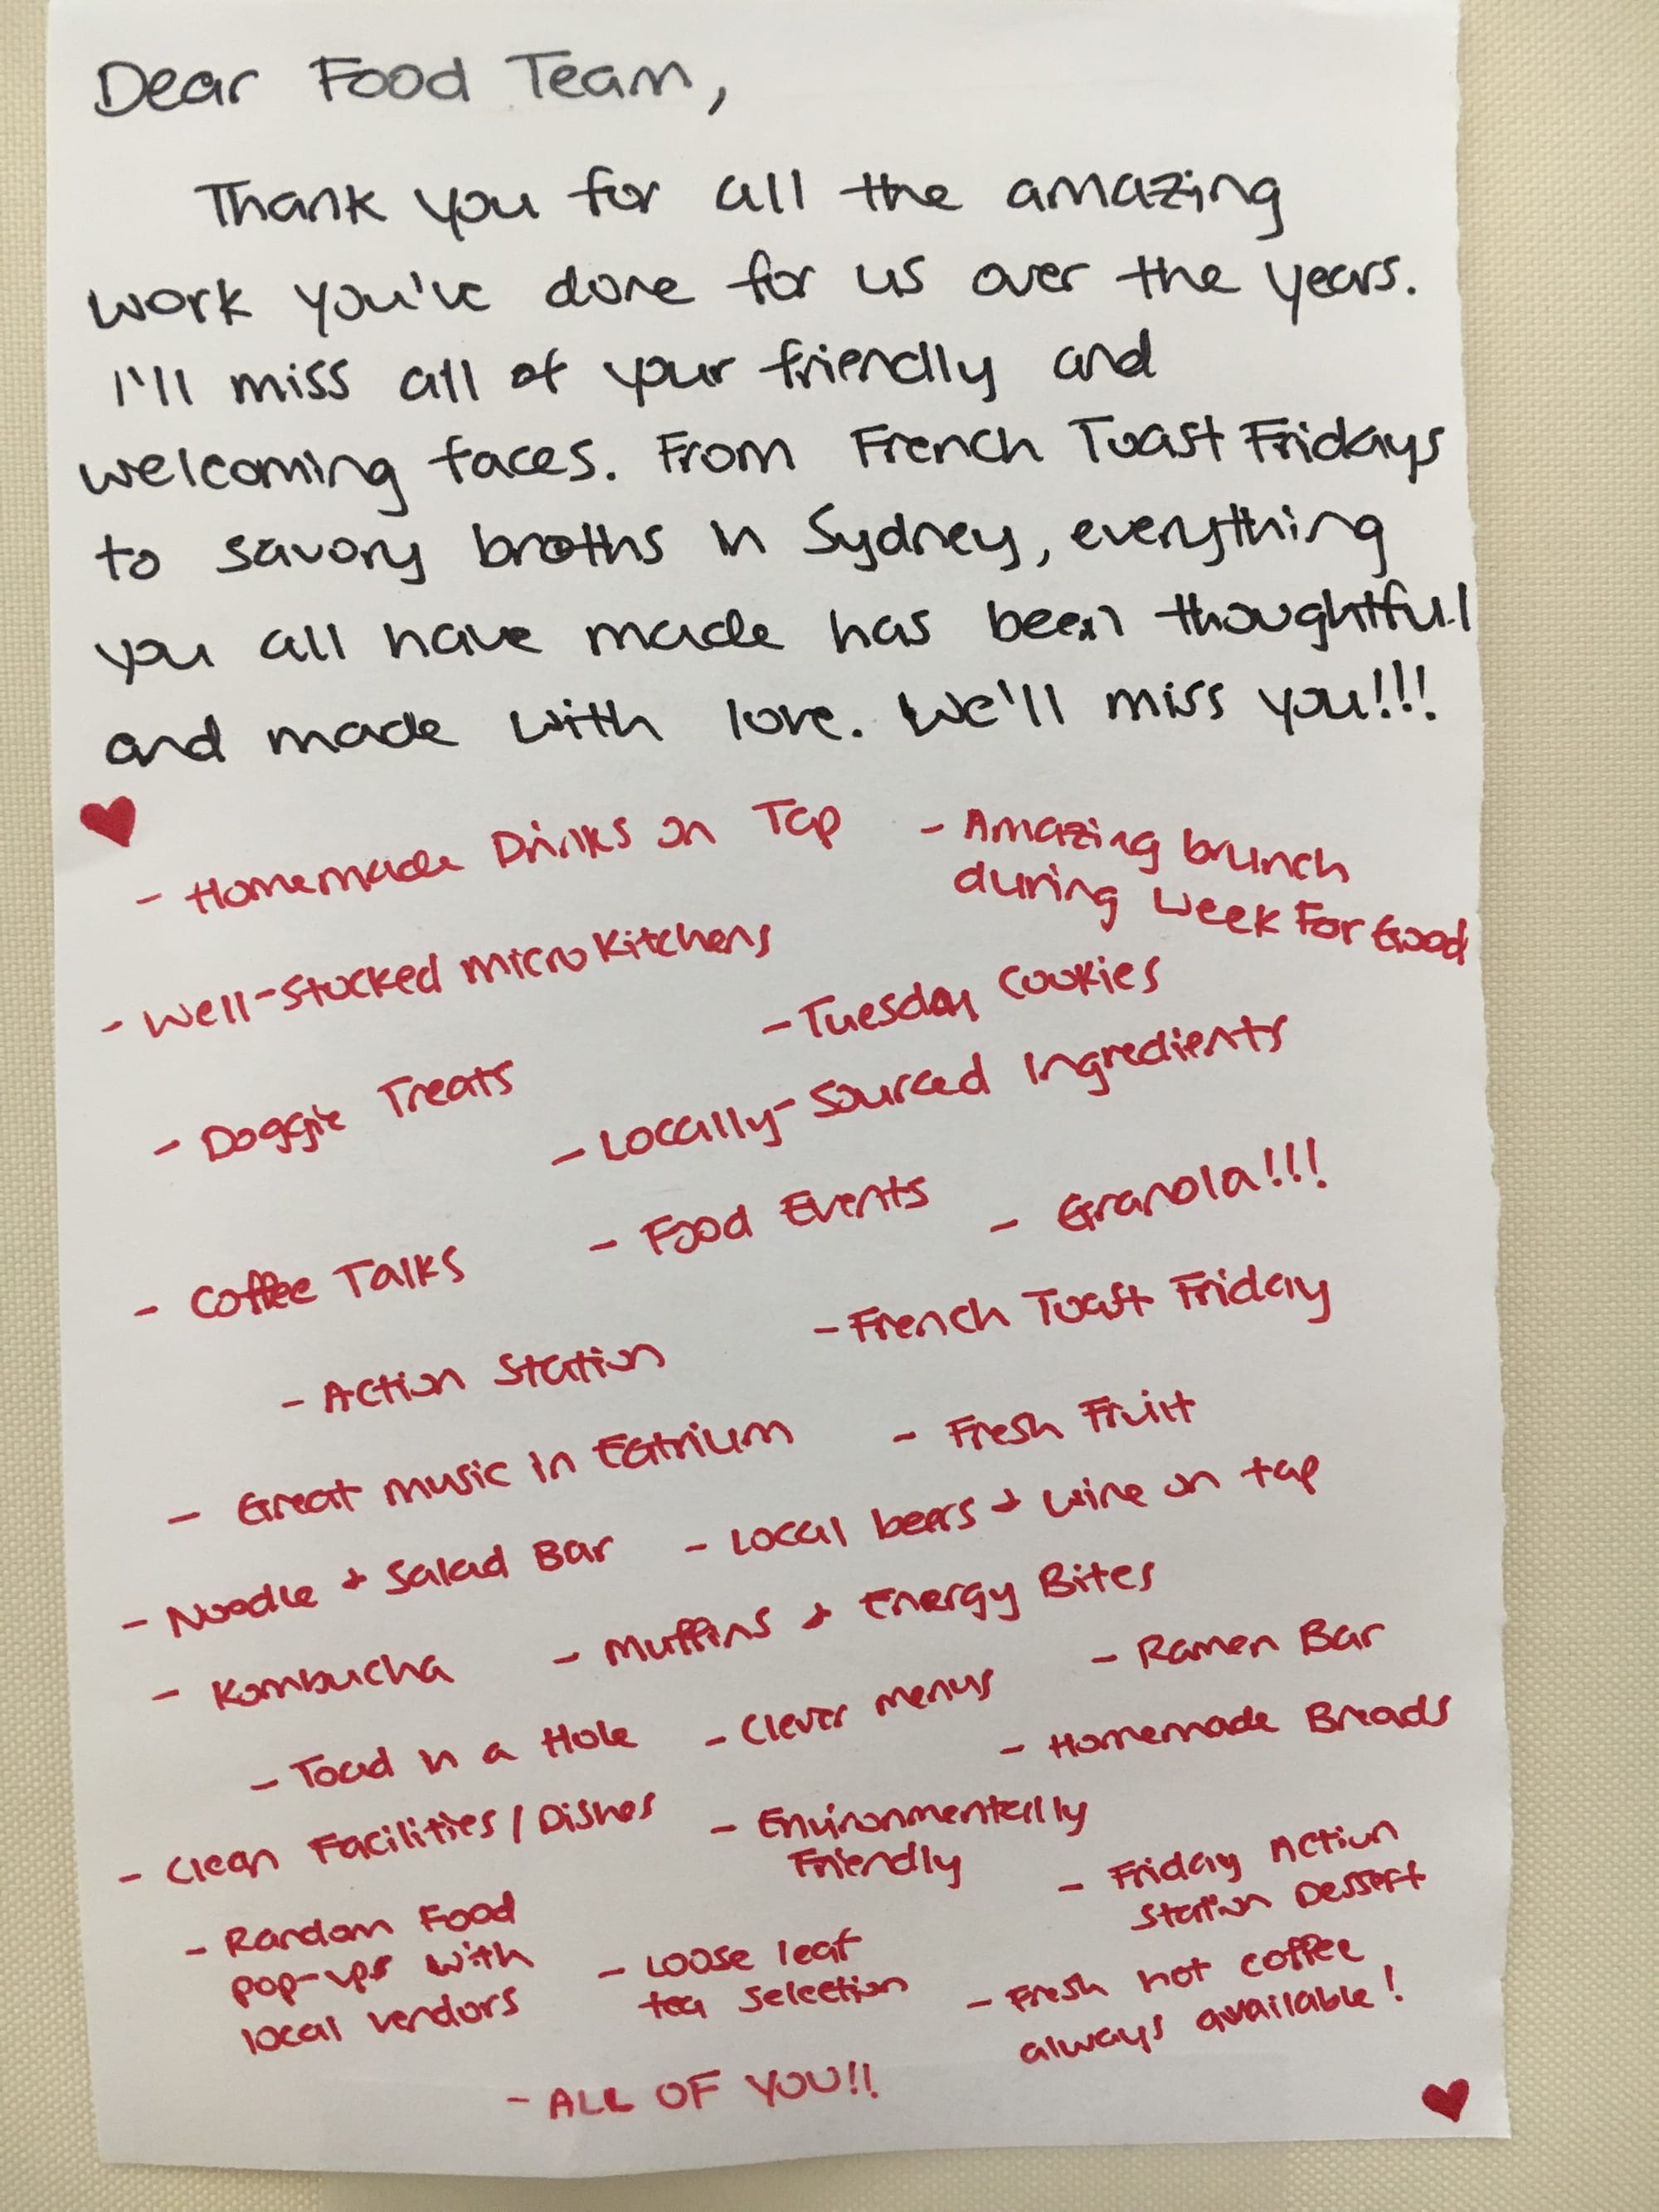 Dear Food Team,
Thank you for all the amazing
work you've done for us over the years.
I'll miss all of your friendly and
welcoming faces. From French Toast Fridays
to savory broths in Sydney, everything
you all have made has been thoughtful
and made with love. We'll miss you!!!
- Homemade Drinks on Tap
- Amazing brunch
during Week For Good
- Well-Stocked micro kitchens
- Tuesday Cookies
- Doggie Treats
- Locally-Sourced Ingredients
- Coffee Talks
- Food Events
- Granola!!!
- Action Station
- French Toast Friday
- Great music in Eatrium
- Fresh Fruit
- Noodle + Salad Bar
- Local beers + wine on tap
- Kombucha
- Muffins + Energy Bites
- Ramen Bar
- Toad in a Hole
- Clever menus
- Homemade Breads
- Clean Facilities/Dishes
- Environmentally
Friendly
- Friday Action
Station Dessert
- Random Food
pop-ups with
local vendors
- Loose leaf
tea selection
- Fresh hot coffee
always available!
- ALL OF YOU!!